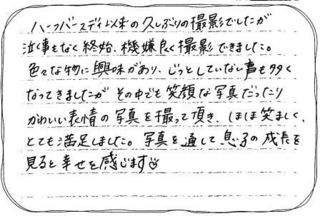 ハーフバースデイ以来の久しぶりの撮影でしたが
泣事もなく終始、機嫌良く撮影できました。
色々な物に興味があり、じっとしていない事も多く
なってきましたが その中でも笑顔な写真だったり
かわいい表情の写真を撮って頂き、ほほ笑ましく、
とても満足しました。写真を通して息子の成長を
見ると幸せを感じます